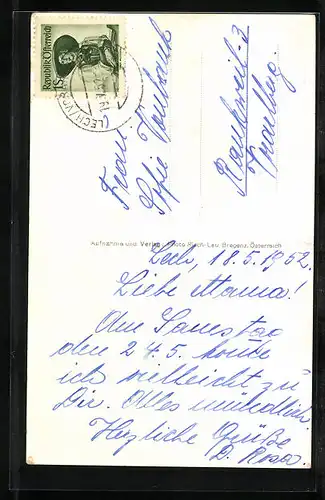 Republik Österreich
1 S
LECH
Frau
Sofie
Rankweil-3
Vorarlberg.
Aufnahme und Verlag Photo Risch-Lau, Bregenz, Österreich
Lech, 18.5.1952.
Liebe Mama!
Am Samstag
den 24.5. komme
ich vielleicht zu
Dir. Alles mündlich.
Herzliche Grüße
D. Rosa.